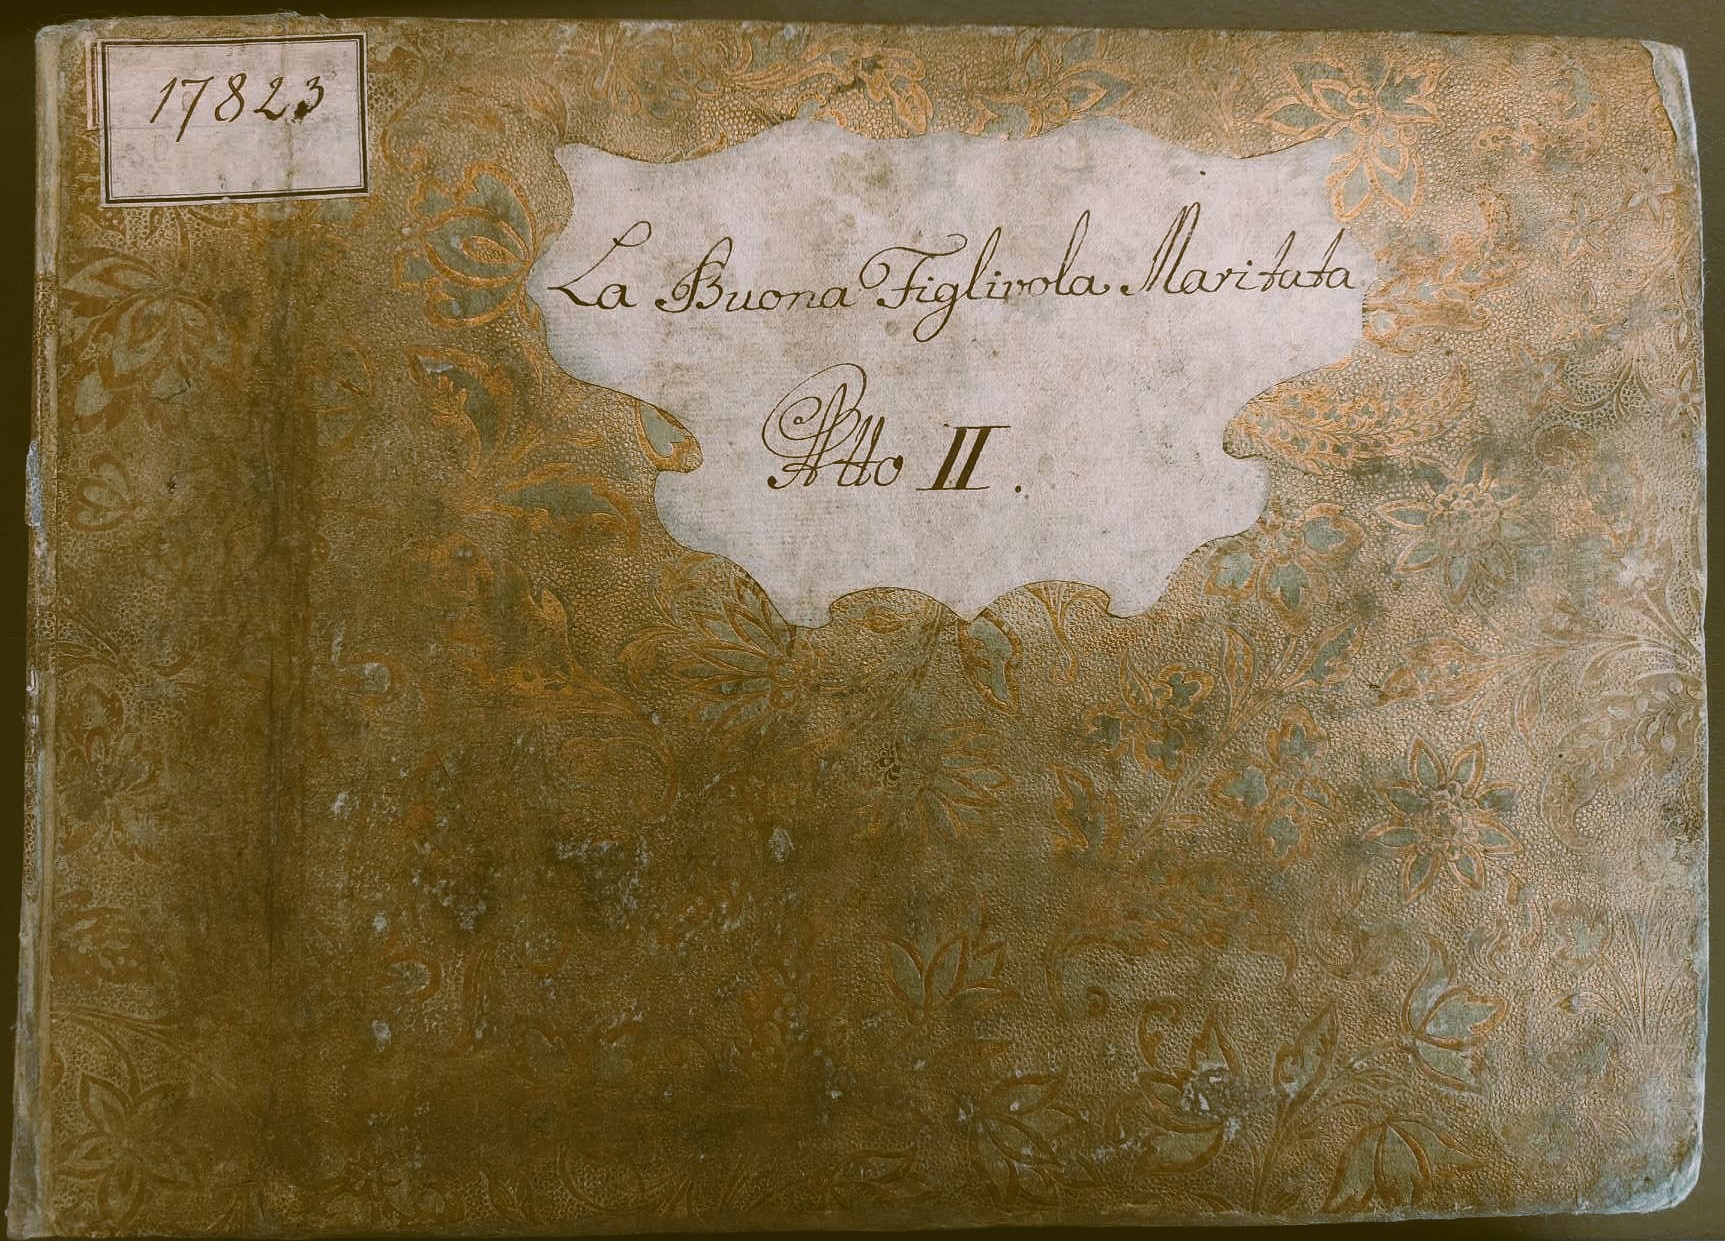 17823
La Buona Figliuola Maritata
Atto II.